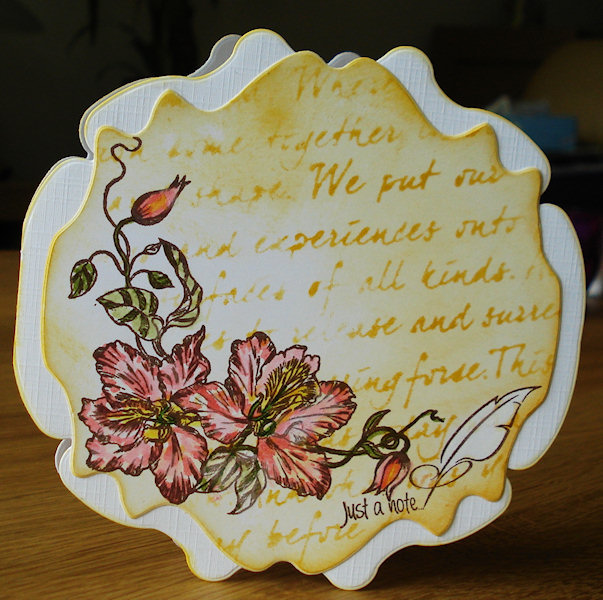 Where
come together
shape. We put our
and experiences onto
faces of all kinds.
to release and surre
ing force. This
Just a note...
before